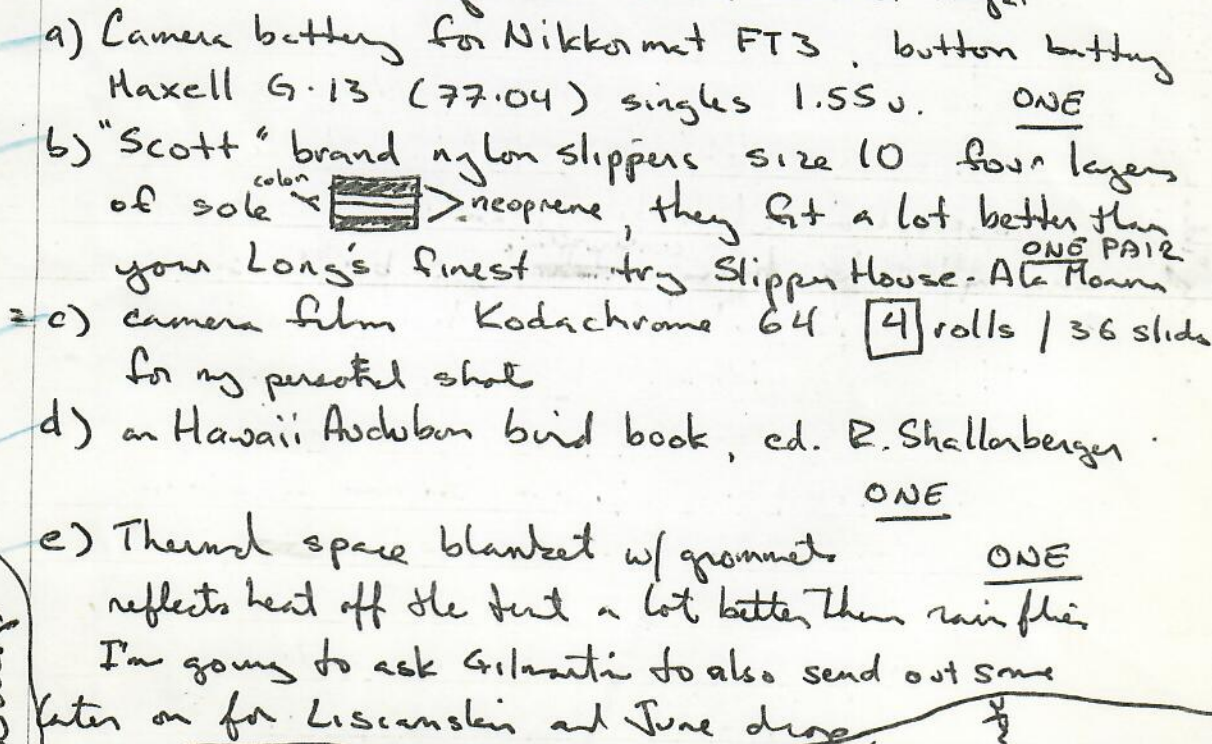 a) Camera battery for Nikkormat FT3, button battery
Maxell G-13 (77.04) singles 1.55 v. ONE
b) "Scott" brand nylon slippers size 10 four layers
of sole color neoprene, they fit a lot better than
your Long's finest ... try Slipper House - Ala Moana ONE PAIR
c) camera film Kodachrome 64 4 rolls / 36 slides
for my personal shots
d) an Hawaii Audubon bird book, ed. R. Shallenberger
ONE
e) Thermal space blanket w/ grommets ONE
reflects heat off the tent a lot better than rain flies
I'm going to ask Gilmartin to also send out some
later on for Lisianski and June drop.